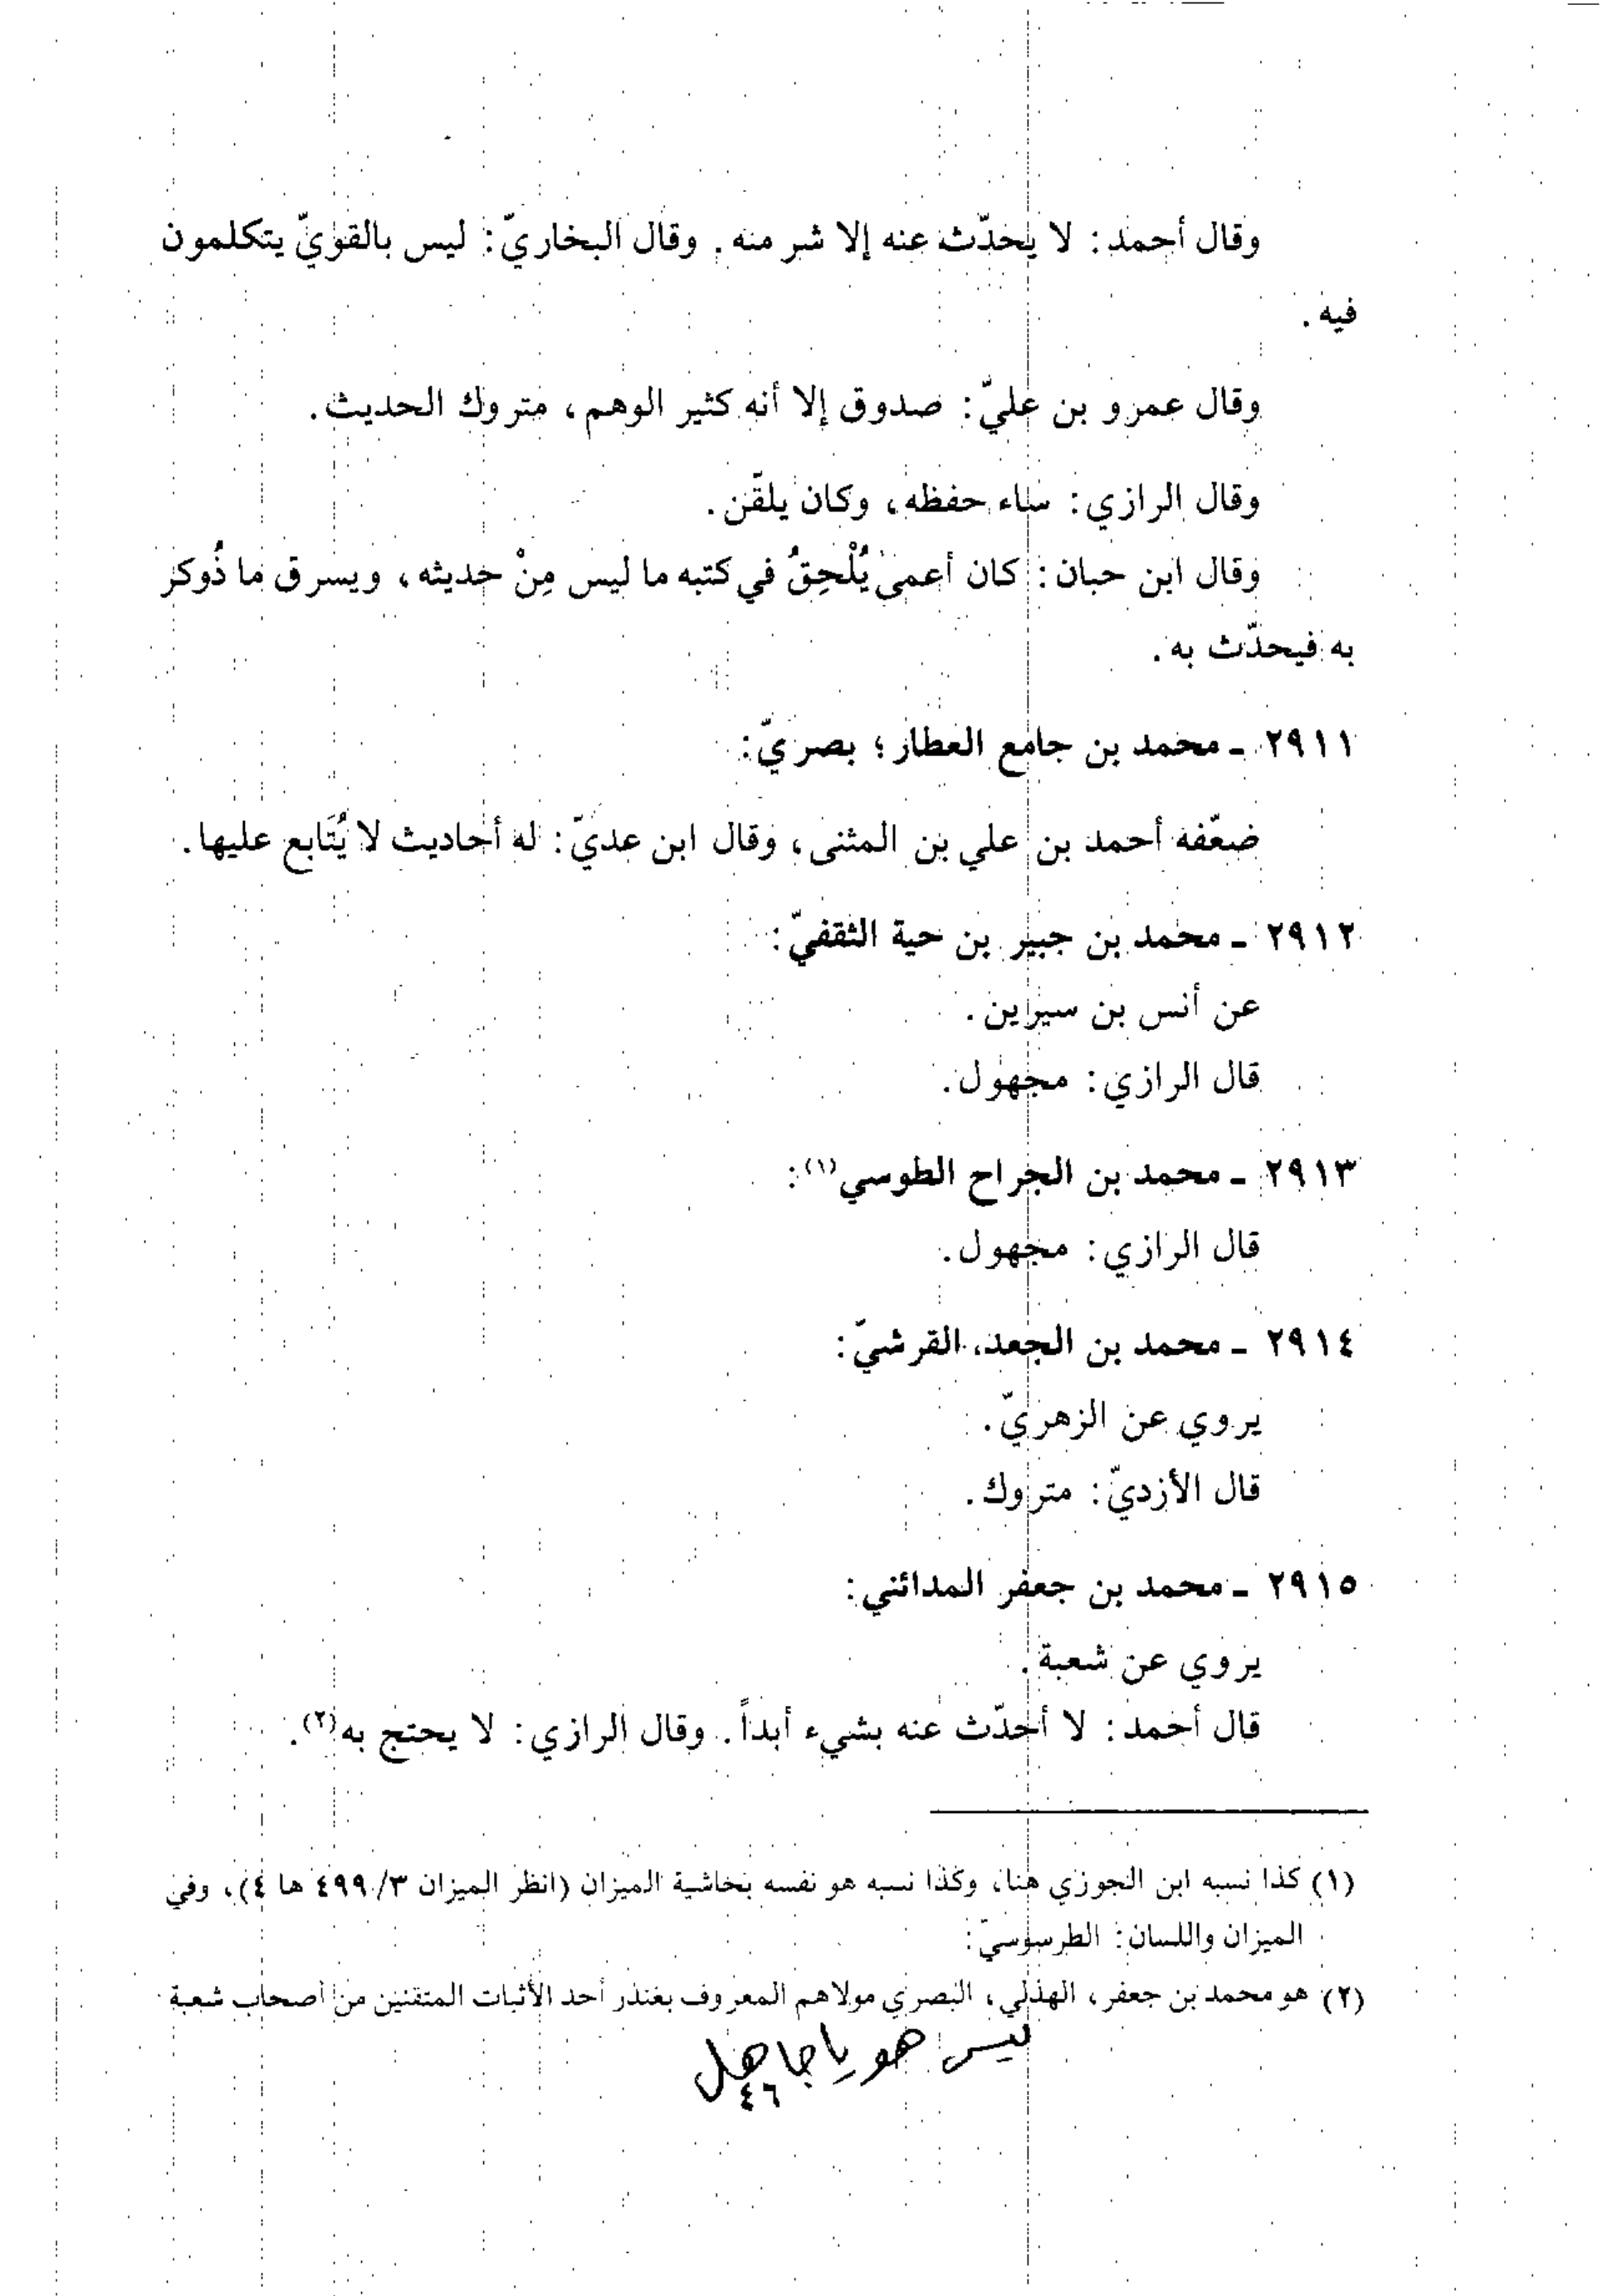 وقال أحمد: لا يحدّث عنه إلا شر منه. وقال البخاريّ: ليس بالقويّ يتكلمون
فيه.
وقال عمرو بن عليّ: صدوق إلا أنه كثير الوهم، متروك الحديث.
وقال الرازي: ساء حفظه، وكان يلقّن.
وقال ابن حبان: كان أعمى يُلْحِقُ في كتبه ما ليس مِنْ حديثه، ويسرق ما ذُوكر
به فيحدّث به.
٢٩١١ ـ محمد بن جامع العطار؛ بصريّ:
ضعّفه أحمد بن علي بن المثنى، وقال ابن عديّ: له أحاديث لا يُتَابع عليها.
٢٩١٢ ـ محمد بن جبير بن حية الثقفيّ:
عن أنس بن سيرين.
قال الرازي: مجهول.
٢٩١٣ ـ محمد بن الجراح الطوسي(١):
قال الرازي: مجهول.
٢٩١٤ ـ محمد بن الجعد، القرشيّ:
يروي عن الزهريّ.
قال الأزديّ: متروك.
٢٩١٥ ـ محمد بن جعفر المدائني:
يروي عن شعبة.
قال أحمد: لا أحدّث عنه بشيء أبداً. وقال الرازي: لا يحتج به(٢).
(١) كذا نسبه ابن الجوزي هنا، وكذا نسبه هو نفسه بحاشية الميزان (انظر الميزان ٤٩٩/٣ ها ٤)، وفي
الميزان واللسان: الطرسوسيّ:
(٢) هو محمد بن جعفر، الهذلي، البصري مولاهم المعروف بغندر أحد الأثبات المتقنين من أصحاب شعبة
ليس هو يا جاهل
٤٦